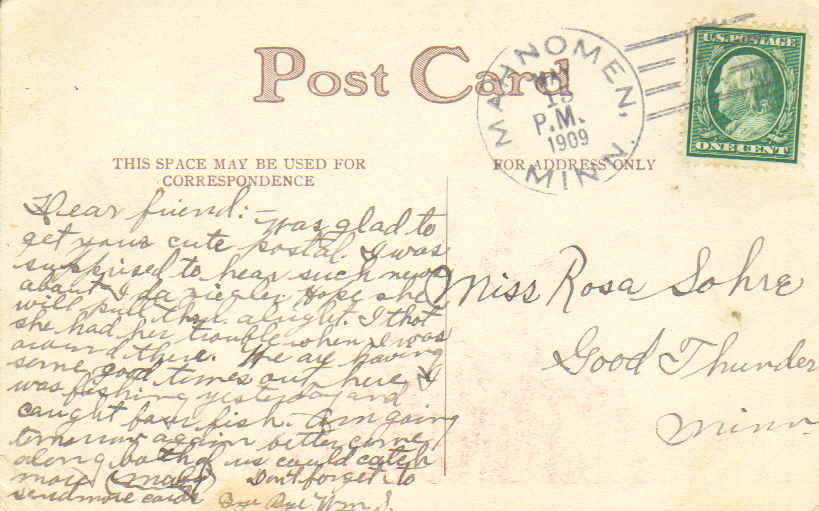 Post Card
MAHNOMEN,
P.M.
1909
MINN.
U.S. POSTAGE
ONE CENT
THIS SPACE MAY BE USED FOR
CORRESPONDENCE
FOR ADDRESS ONLY
Dear friend:- Was glad to
get your cute postal. I was
supprised to hear such news
about Ida Hope she
will pull thru alright. I thot
she had her trouble when I was
around there. We are having
some good times out here. I
was fishing yesterday and
caught four fish. Am going
tomorrow again better come
along both of us could catch
more (maby) Don't forget to
send more cards Bye Bye Wm S.
Miss Rosa Sohre
Good Thunder
Minn